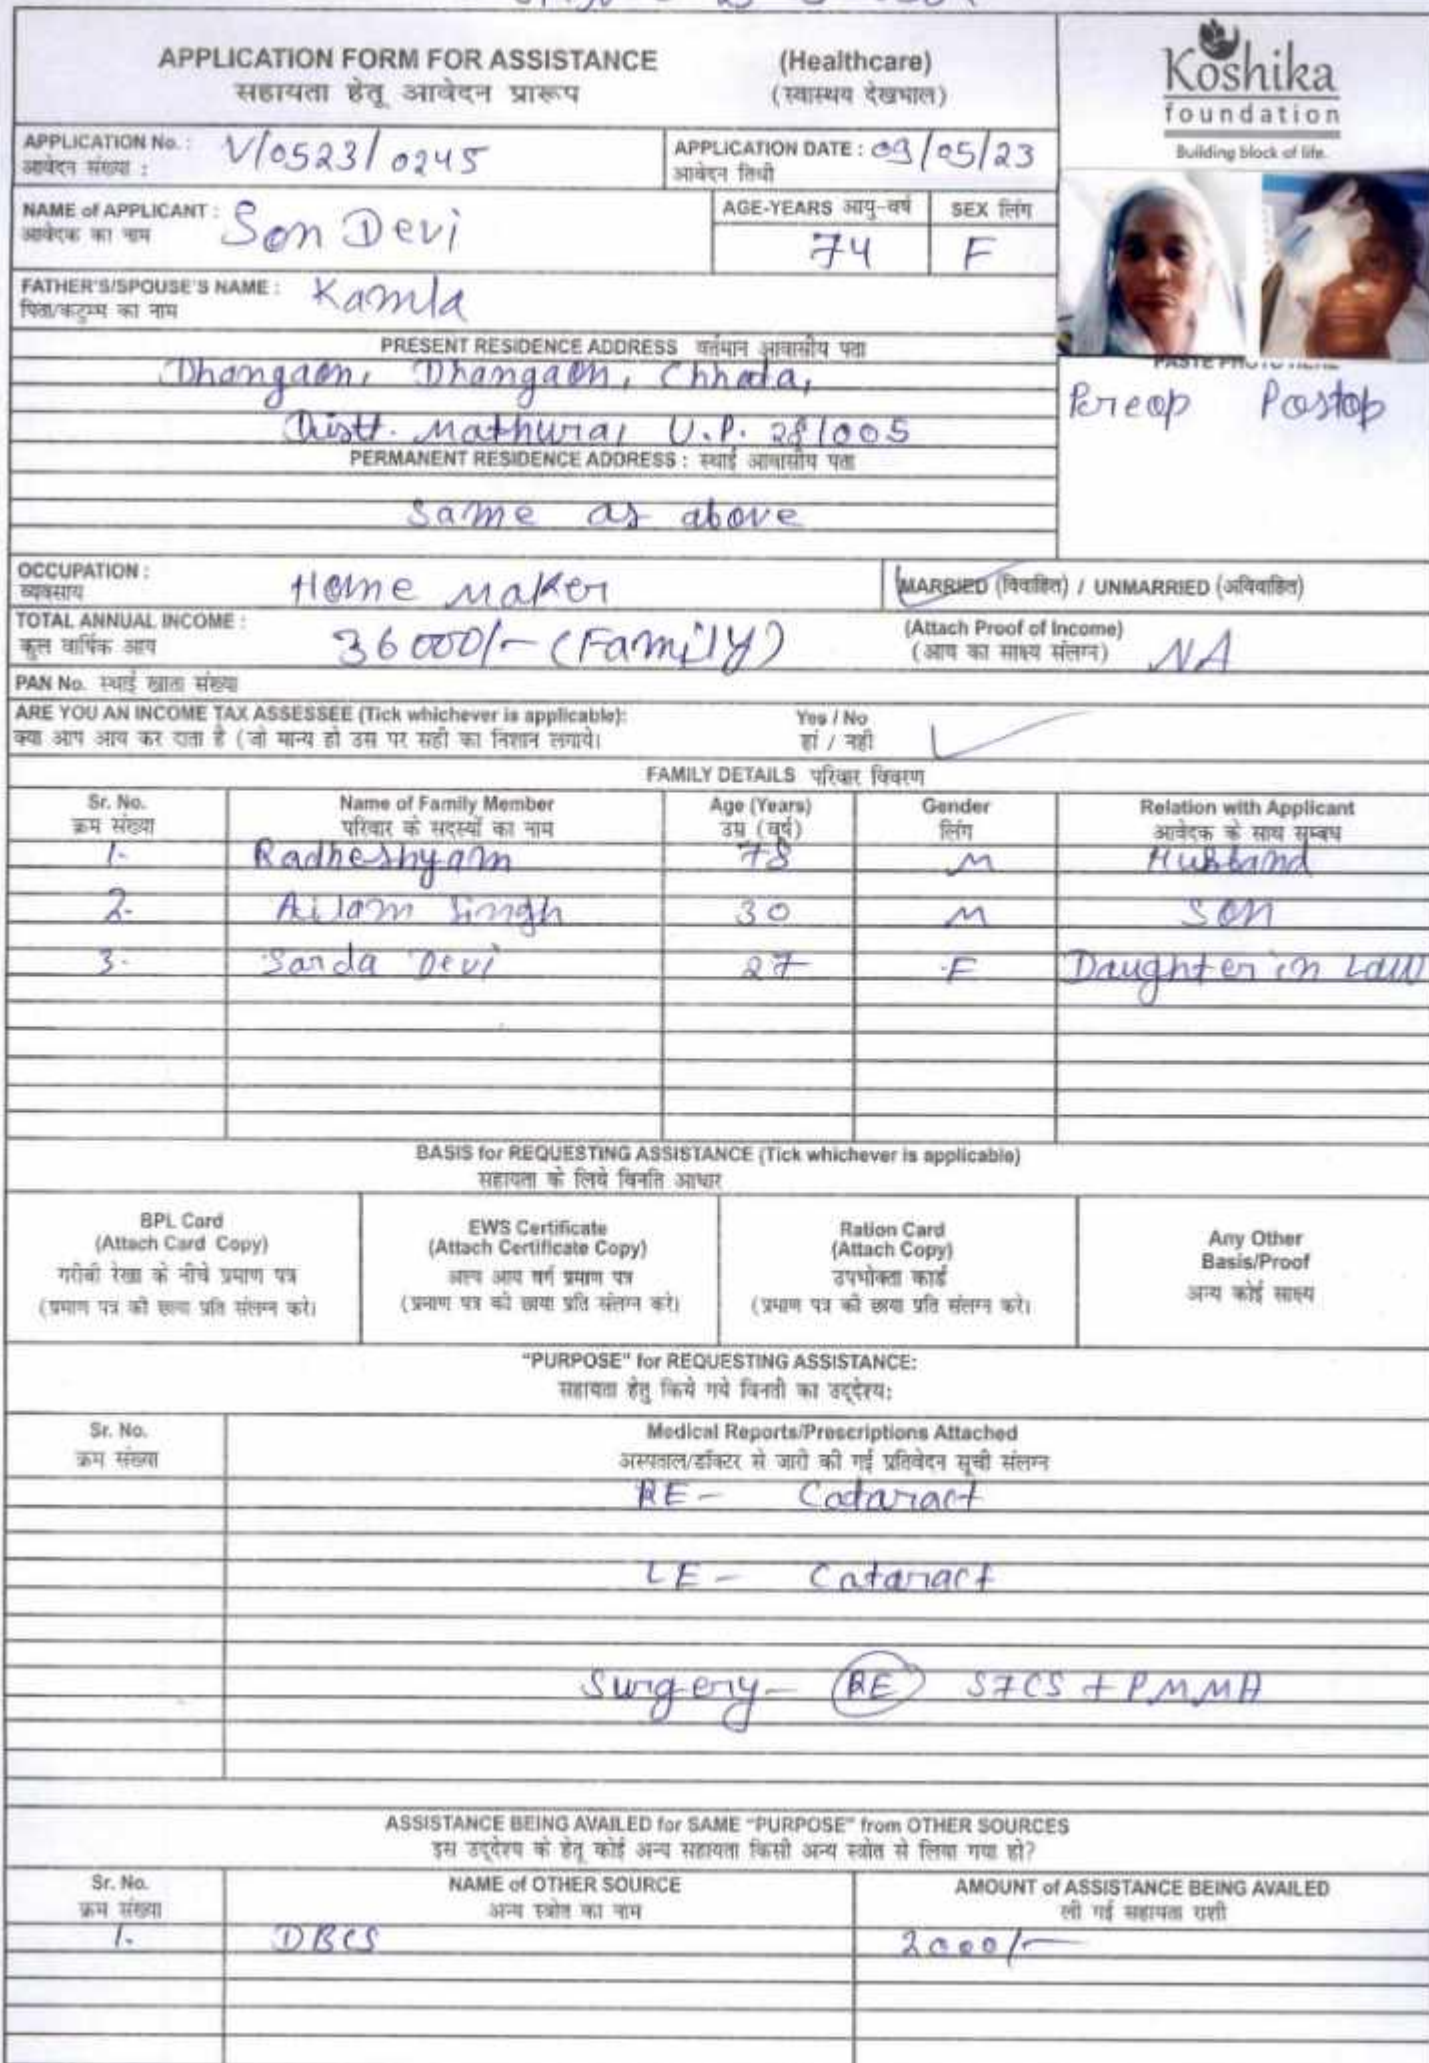 APPLICATION FORM FOR ASSISTANCE (Healthcare)
सहायता हेतू आवेदन प्रारूप (स्वास्थय देखभाल)
Koshika
foundation
Building block of life.
APPLICATION No. : V/0523/0245
आवेदन संख्या :
APPLICATION DATE : 09/05/23
आवेदन तिथी
NAME of APPLICANT : Son Devi
आवेदक का नाम
AGE-YEARS आयु-वर्ष SEX लिंग
74 F
FATHER'S/SPOUSE'S NAME : Kamla
पिता/कटुम्ब का नाम
PRESENT RESIDENCE ADDRESS वर्तमान आवासीय पता
Dhangaon, Dhangaon, Chhata,
Distt. Mathura, U.P. 281005
PASTE PHOTO HERE
Preop Postop
PERMANENT RESIDENCE ADDRESS : स्थाई आवासीय पता
Same as above
OCCUPATION : Home Maker
व्यवसाय
MARRIED (विवाहित) / UNMARRIED (अविवाहित)
TOTAL ANNUAL INCOME : 36000/- (Family)
कुल वार्षिक आय
(Attach Proof of Income) NA
(आय का साक्ष्य संलग्न)
PAN No. स्थाई खाता संख्या
ARE YOU AN INCOME TAX ASSESSEE (Tick whichever is applicable): Yes / No
क्या आप आय कर दाता है (जो मान्य हो उस पर सही का निशान लगाये। हां / नही
FAMILY DETAILS परिवार विवरण
Sr. No. Name of Family Member Age (Years) Gender Relation with Applicant
क्रम संख्या परिवार के सदस्यों का नाम उम्र (वर्ष) लिंग आवेदक के साथ सम्बध
1- Radheshyam 78 M Husband
2- Ailam Singh 30 M Son
3- Sarda Devi 27 F Daughter in Law
BASIS for REQUESTING ASSISTANCE (Tick whichever is applicable)
सहायता के लिये विनति आधार
BPL Card
(Attach Card Copy)
गरीबी रेखा के नीचे प्रमाण पत्र
(प्रमाण पत्र की छाया प्रति संलग्न करे।
EWS Certificate
(Attach Certificate Copy)
अल्प आय वर्ग प्रमाण पत्र
(प्रमाण पत्र की छाया प्रति संलग्न करे।
Ration Card
(Attach Copy)
उपभोक्ता कार्ड
(प्रमाण पत्र की छाया प्रति संलग्न करे।
Any Other
Basis/Proof
अन्य कोई साक्ष्य
"PURPOSE" for REQUESTING ASSISTANCE:
सहायता हेतु किये गये विनती का उद्देश्य:
Sr. No. Medical Reports/Prescriptions Attached
क्रम संख्या अस्पताल/डॉक्टर से जारी की गई प्रतिवेदन सूची संलग्न
RE- Cataract
LE- Cataract
Surgery- RE SICS + PMMA
ASSISTANCE BEING AVAILED for SAME "PURPOSE" from OTHER SOURCES
इस उद्देश्य के हेतू कोई अन्य सहायता किसी अन्य स्त्रोत से लिया गया हो?
Sr. No. NAME of OTHER SOURCE AMOUNT of ASSISTANCE BEING AVAILED
क्रम संख्या अन्य स्त्रोत का नाम ली गई सहायता राशी
1. DBCS 2000/-